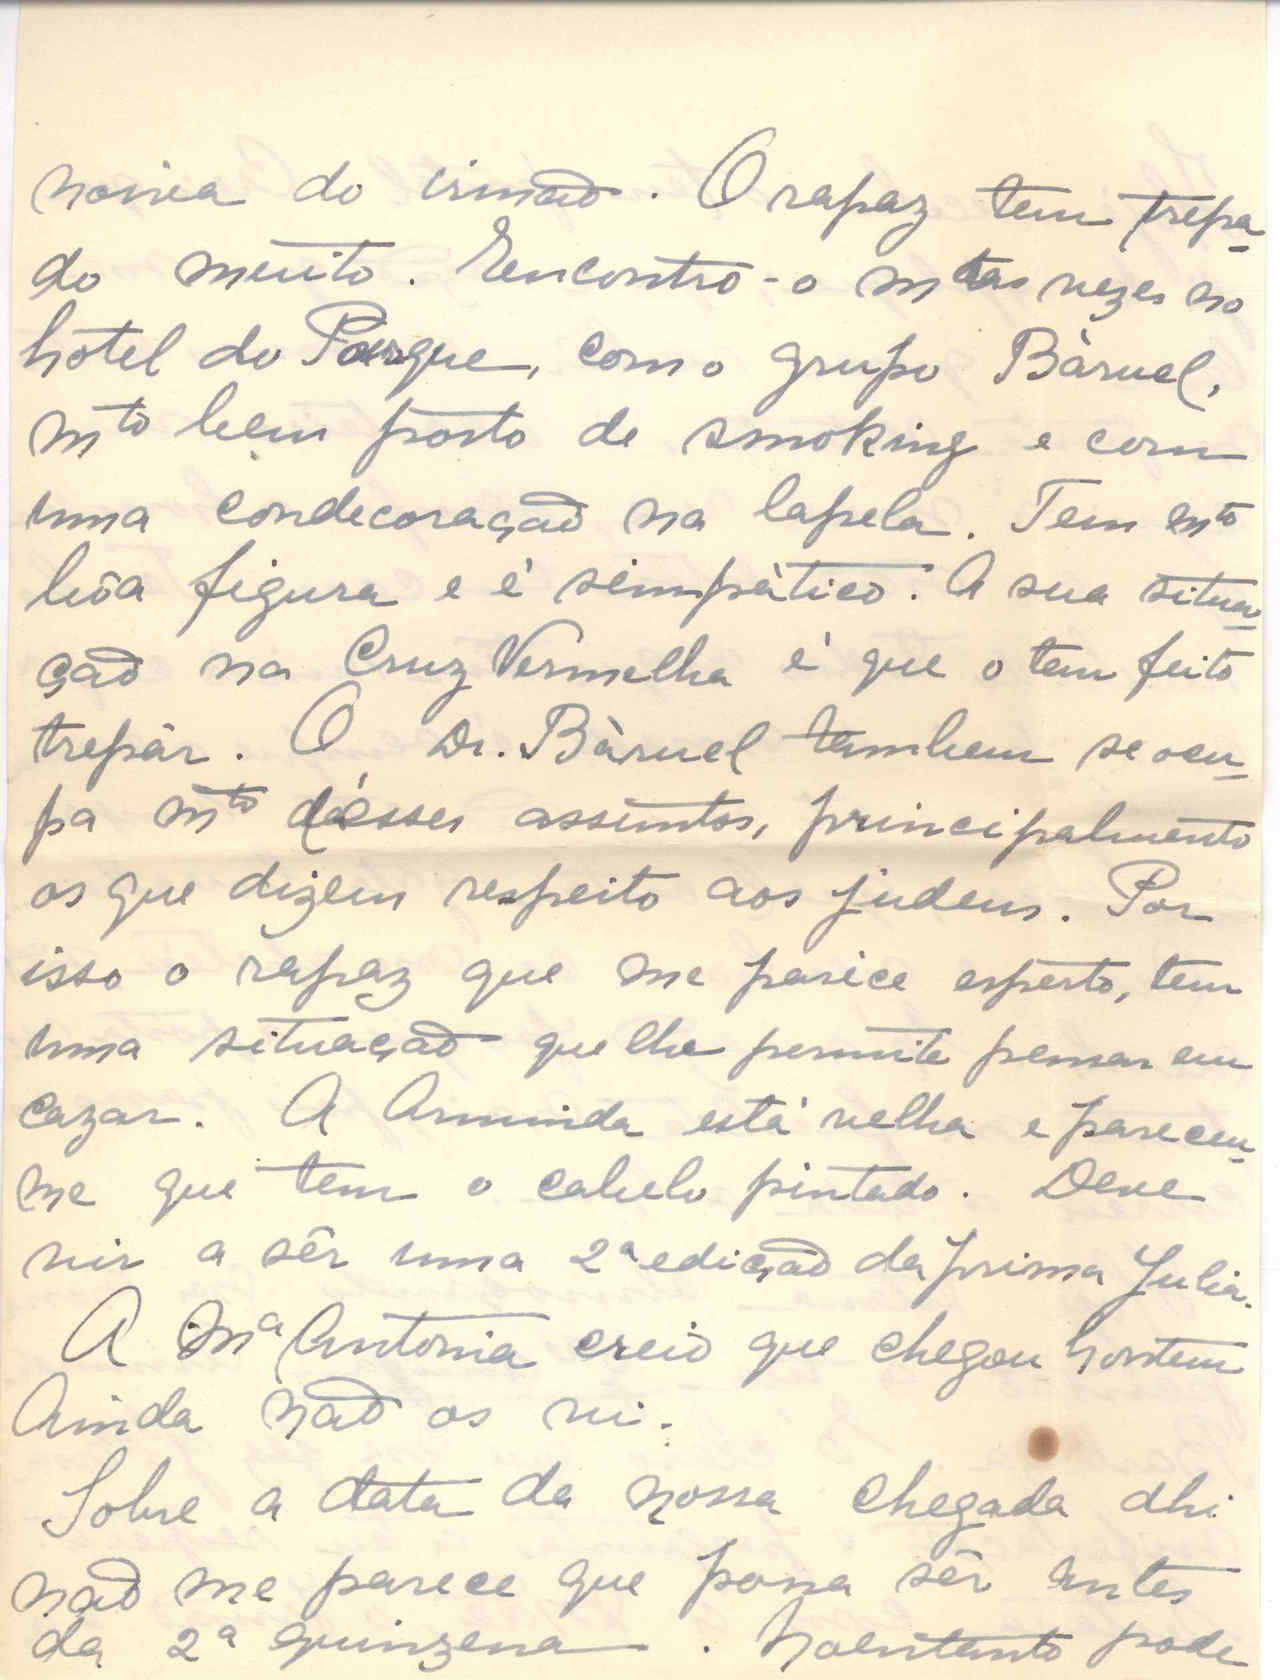 noiva do irmão. O rapaz tem trepa-
do muito. Encontro-o mtas vezes no
hotel do Parque, com o grupo Bàruel,
mto bem posto de smoking e com
uma condecoração na lapela. Tem mto
bôa figura e é simpàtico. A sua situa-
ção na Cruz Vermelha é que o tem feito
trepár. O Dr. Bàruel tambem se ocu-
pa mto désses assuntos, principalmente
os que dizem respeito aos judeus. Por
isso o rapaz que me parece esperto, tem
uma situação que lhe permite pensar em
cazar. A Arminda está velha e pareceu-
me que tem o cabelo pintado. Deve
vir a sêr uma 2ª edição da prima Julia.
A Mª Antonia creio que chegou hontem
Ainda não os vi.
Sobre a data da nossa chegada ahi
não me parece que possa sêr antes
da 2ª quinzena. Noentanto pode